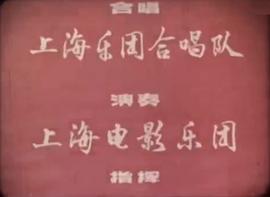 合唱
上海乐团合唱队
演奏
上海电影乐团
指挥